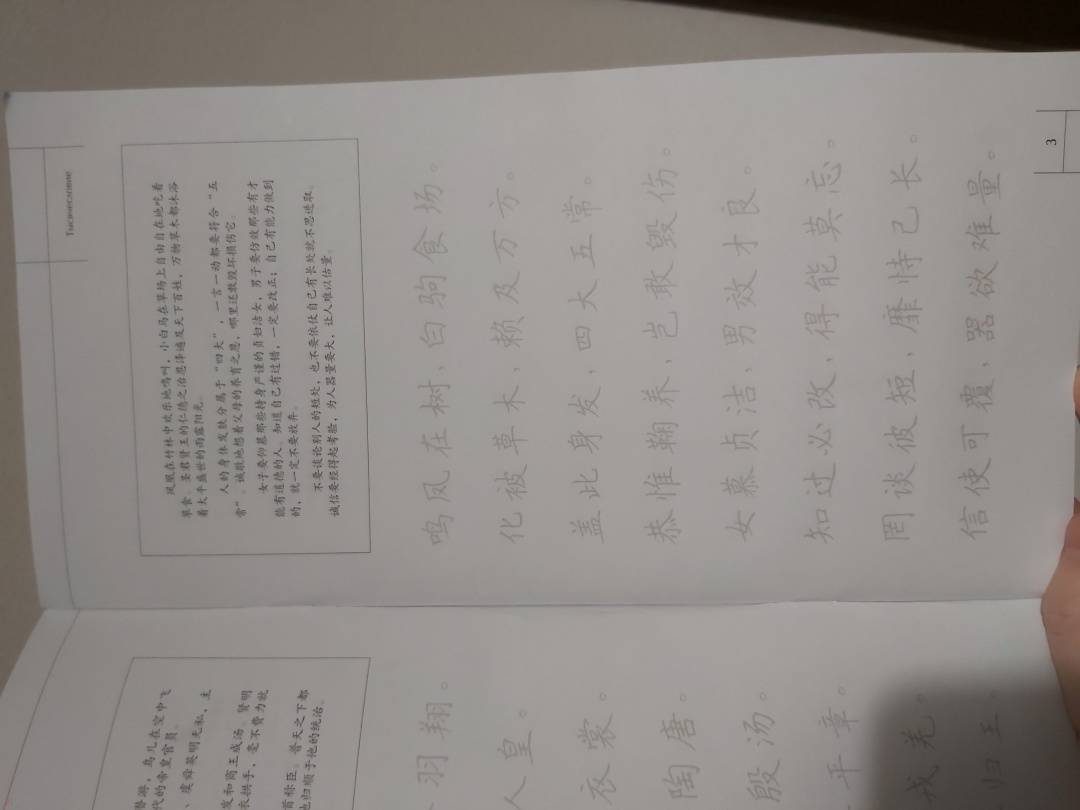 游，鸟儿在空中飞
代的帝皇官员。
、虞舜英明无私，主
发和商王成汤。贤明
衣拱手，毫不费力就
首称臣。普天之下都
归顺于他的统治。
羽翔。
人皇。
衣裳。
陶唐。
殷汤。
平章。
戎羌。
归王。
Тысячесловие
凤凰在竹林中欢乐地鸣叫，小白马在草场上自由自在地吃着
草食。圣君贤王的仁德之治恩泽遍及天下百姓，万物草木都沐浴
着太平盛世的雨露阳光。
人的身体发肤分属于“四大”，一言一动都要符合“五
常”。诚敬地想着父母的养育之恩，哪里还敢毁坏损伤它。
女子要仰慕那些持身严谨的贞妇洁女，男子要仿效那些有才
能有道德的人。知道自己有过错，一定要改正；自己有能力做到
的，就一定不要放弃。
不要谈论别人的短处，也不要依仗自己有长处就不思进取。
诚信要经得起考验，为人器量要大，让人难以估量。
鸣凤在树、白驹食场。
化被草木，赖及万方。
盖此身发，四大五常。
恭惟鞠养，岂敢毁伤。
女慕贞洁，男效才良。
知过必改，得能莫忘。
罔谈彼短，靡恃己长。
信使可覆，器欲难量。
3